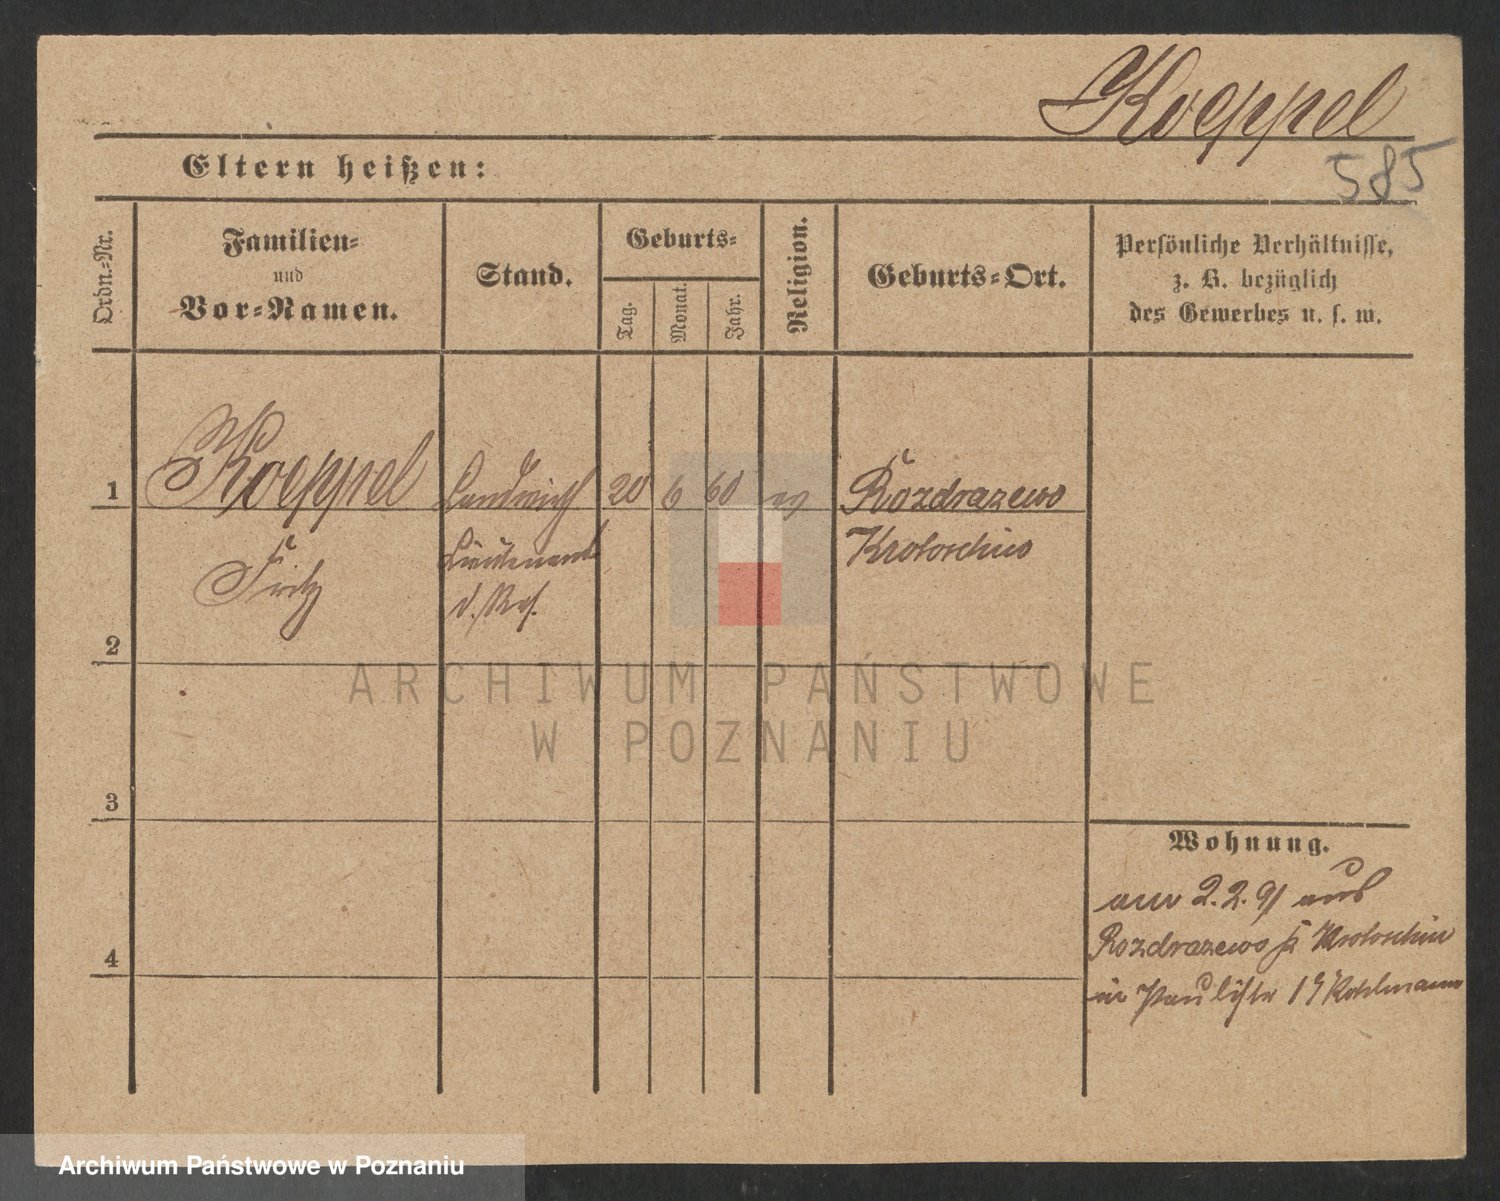 Koeppel
585
Eltern heißen:
Ordn.-Nr.
Familien-
und
Vor-Namen.
Stand.
Geburts-
Tag.
Monat.
Jahr.
Religion.
Geburts-Ort.
Persönliche Verhältnisse,
z. B. bezüglich
des Gewerbes u. s. w.
1 Koeppel Landwirth 20 6 60 ev Rozdrazewo
Fritz Lieutenant Krotoschin
d. Res.
2
3
4
Wohnung.
am 2.2.91 aus
Rozdrazewo Krotoschin
in Paulistr 19
ARCHIWUM PAŃSTWOWE
W POZNANIU
Archiwum Państwowe w Poznaniu